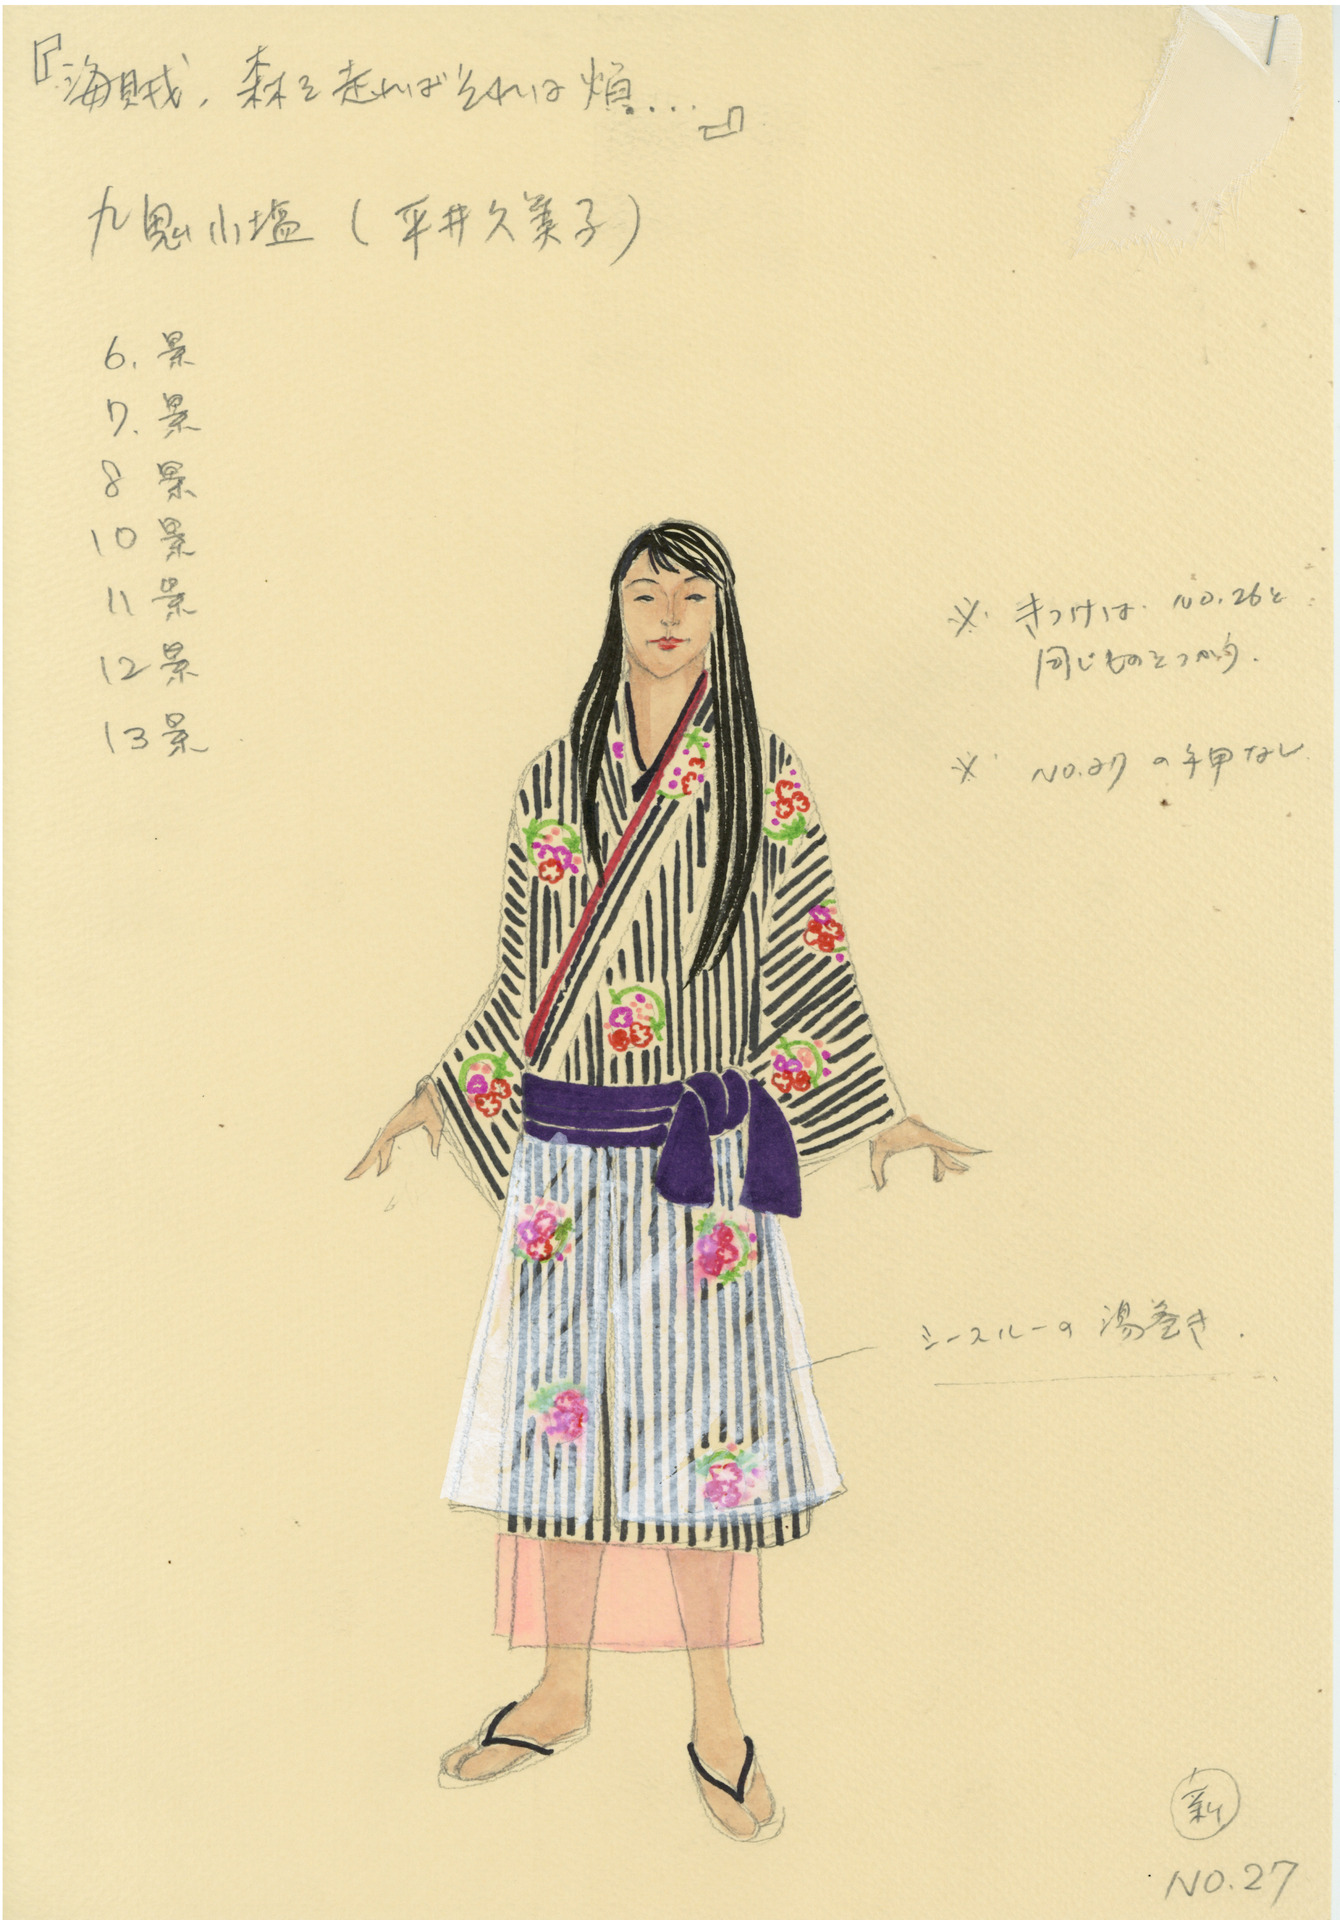 『海賊、森を走ればそれは焔...』
九鬼小塩(平井久美子)
6.景
7.景
8 景
10 景
11 景
12 景
13 景
※ きつけは NO.26と
同じものをつかう.
※ NO.27 の手甲なし
シースルーの 湯巻き.
新
NO.27